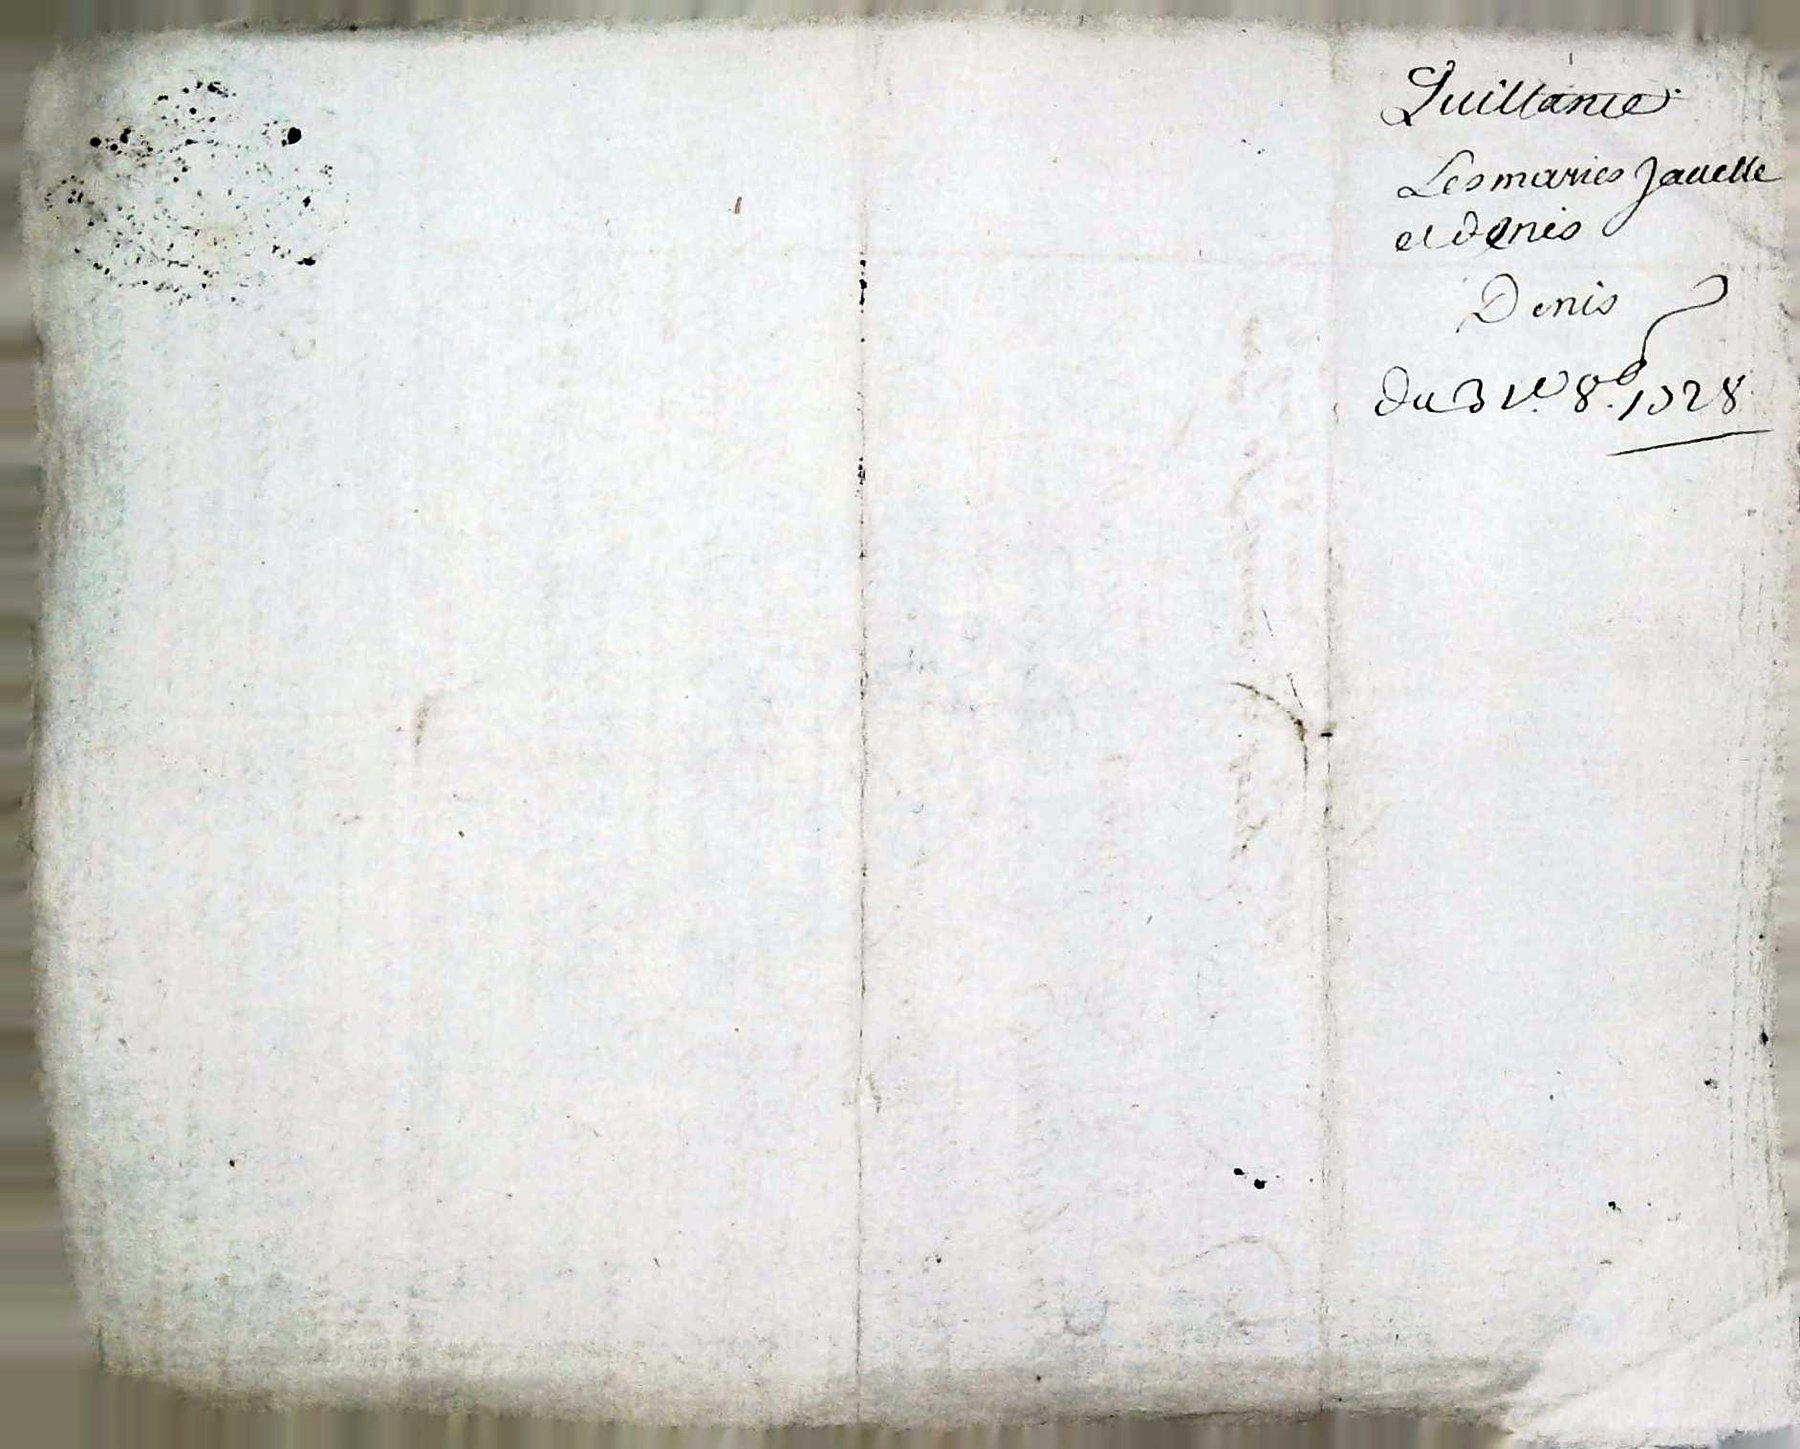 Quittance
Les maries Jauelle
et denis
Denis
du 31e. 8b. 1728